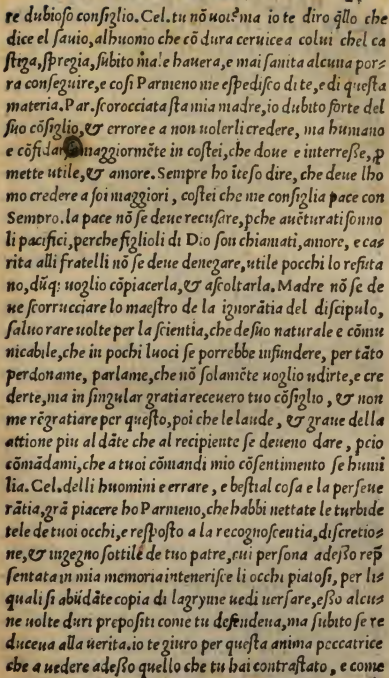 re dubioso consiglio. Cel. tu nō uoi? ma io te diro q̄llo che
dice el sauio, alhuomo che cō dura ceruice a colui chel ca
stiga, spregia, subito male hauera, e mai sanita alcuna por⸗
ra conseguire, e cosi Parmeno me espedisco di te, e di questa
materia. Par. scorocciata sta mia madre, io dubito forte del
suo cōsiglio, & errore e a non uolerli credere, ma humano
e cōfidar maggiormēte in costei, che doue e interresse, ꝑ
mette utile, & amore. Sempre ho īteso dire, che deue lho
mo credere a soi maggiori, costei che me consiglia pace con
Sempro. la pace nō se deue recusare, pche auēturati sonno
li pacifici, perche figlioli di Dio son chiamati, amore, e ca⸗
rita alli fratelli nō se deue denegare, utile pocchi lo refuta
no, dūq; uoglio cōpiacerla, & ascoltarla. Madre nō se de
ue scorrucciare lo maestro de la ignorātia del discipulo,
saluo rare uolte per la scientia, che de suo naturale e cōmu
nicabile, che in pochi luoci se porrebbe infundere, per tāto
perdoname, parlame, che nō solamēte uoglio udirte, e cre
derte, ma in singular gratia receuero tuo cōsiglio, & non
me rēgratiare per questo, poi che le laude, & graue della
attione piu al dāte che al recipiente se deueno dare, pcio
cōmādami, che a tuoi cōmandi mio cōsentimento se humi
lia. Cel. delli huomini e errare, e bestial cosa e la perseue
rātia, grā piacere ho Parmeno, che habbi nettate le turbide
tele de tuoi occhi, e resposto a la recognoscentia, discretio⸗
ne, & ingegno sottile de tuo patre, cui persona adesso rep̄
sentata in mia memoria intenerisce li occhi piatosi, per li⸗
quali si abūdāte copia di lagryme uedi uersare, esso alcu⸗
ne uolte duri prepositi come tu defendeua, ma subito se re
duceua alla uerita. io te giuro per questa anima peccatrice
che a uedere adesso quello che tu hai contrastato, e come